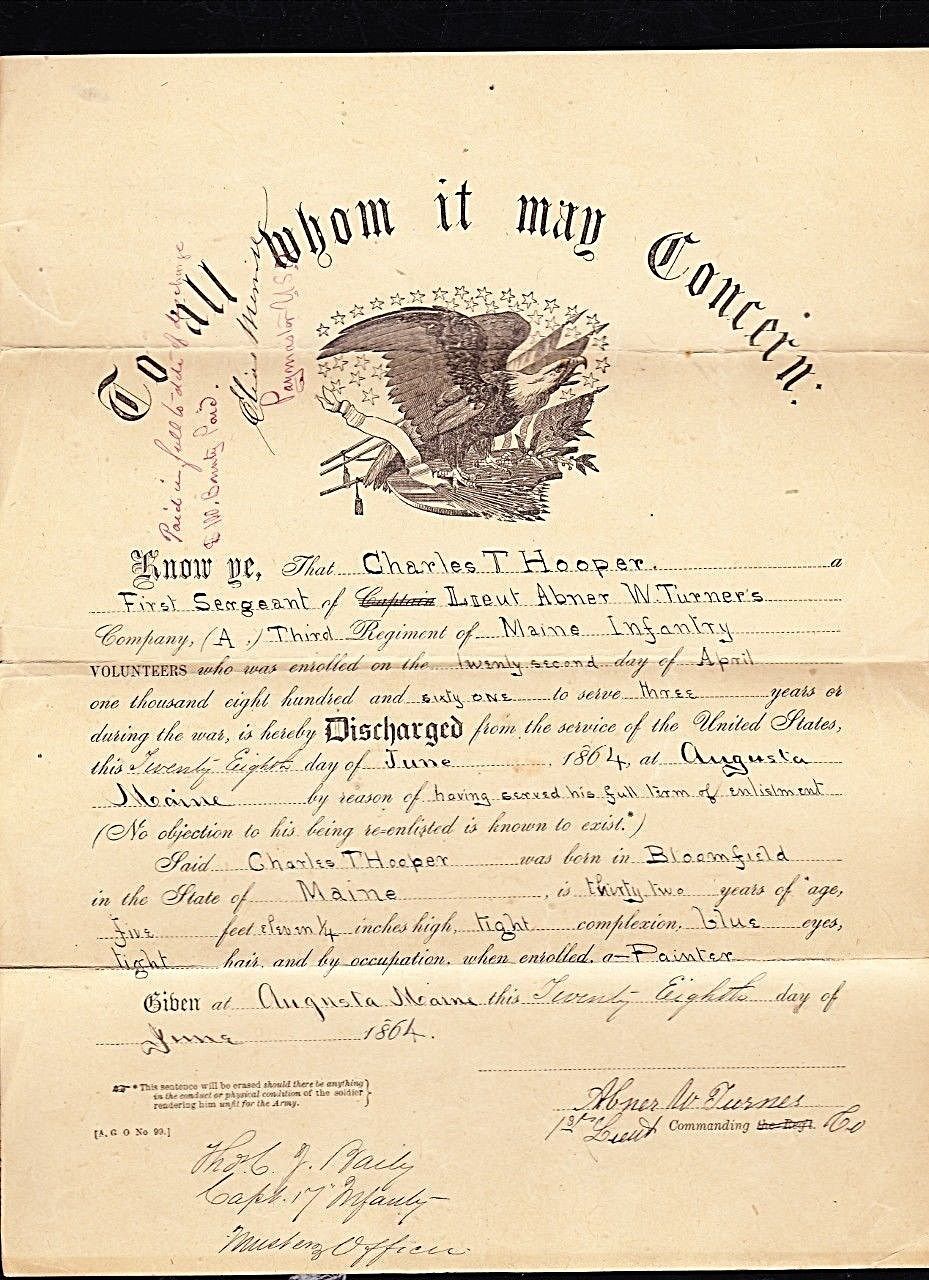 To all whom it may Concern.
Paid in full to date of discharge
& 100. Bounty Paid.
Elias Merrill
Paymaster U.S.
Know ye, That Charles T Hooper. a
First Sergeant of Captain Lieut Abner W. Turner's
Company, (A,) Third Regiment of Maine Infantry
VOLUNTEERS who was enrolled on the twenty second day of April
one thousand eight hundred and sixty one to serve three years or
during the war, is hereby Discharged from the service of the United States,
this Twenty Eighth day of June, 1864, at Augusta
Maine by reason of having served his full term of enlistment
(No objection to his being re-enlisted is known to exist.*)
Said Charles T Hooper was born in Bloomfield
in the State of Maine, is thirty two years of age,
five feet eleven 1/4 inches high, light complexion, blue eyes,
light hair, and by occupation, when enrolled, a Painter
Given at Augusta Maine this Twenty Eighth day of
June 1864.
* This sentence will be erased should there be anything
in the conduct or physical condition of the soldier
rendering him unfit for the Army.
[A. G. O No. 99.]
Abner W Turner
1st Lieut Commanding the Regt. Co
Thos. J. Baily
Capt. 17 Infanty
Musterg Officer